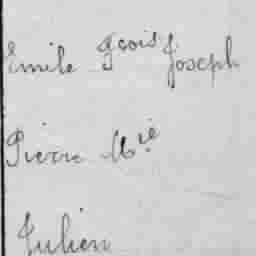 Emile Fçois Joseph
Pierre Mie
Julien